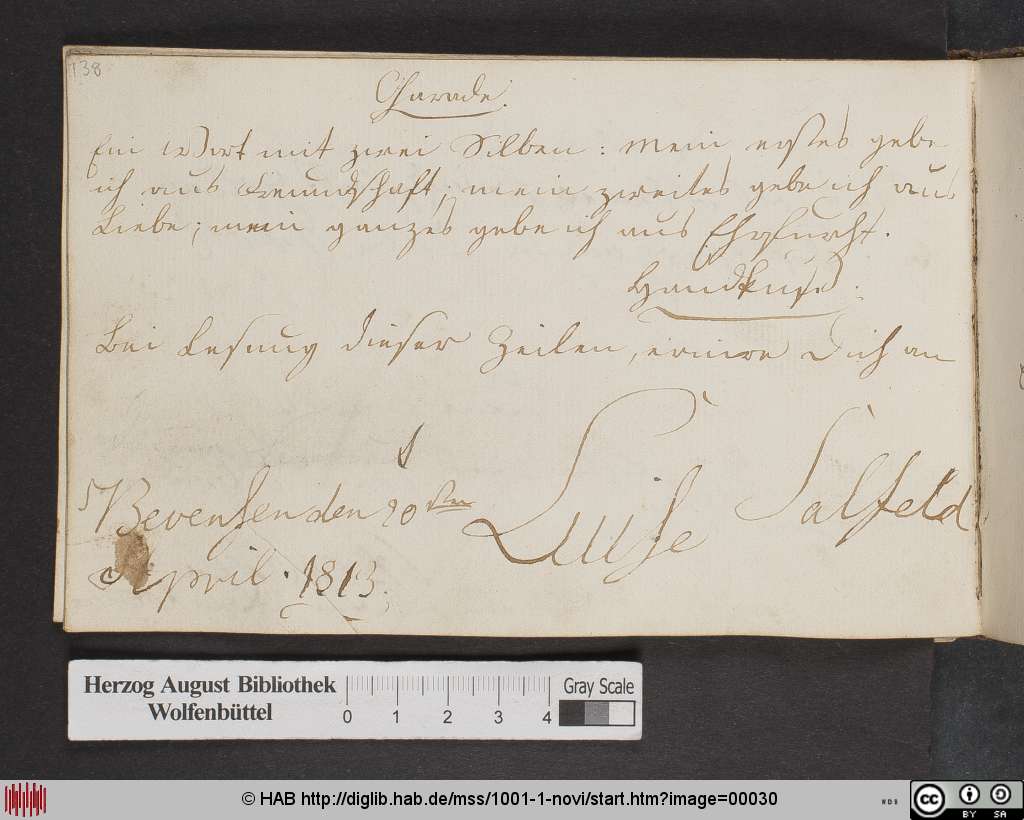 138
Charade.
Ein Wort mit zwei Silben: mein erstes gebe
ich aus Freundschaft; mein zweites gebe ich aus
Liebe; mein ganzes gebe ich aus Ehrfurcht.
Handkuß.
Bei Lesung dieser Zeilen, erinre Dich an
Luise Salfeld
Bevensen den 20sten
April. 1813.
Herzog August Bibliothek
Wolfenbüttel
0 1 2 3 4
Gray Scale
© HAB http://diglib.hab.de/mss/1001-1-novi/start.htm?image=00030
cc BY SA